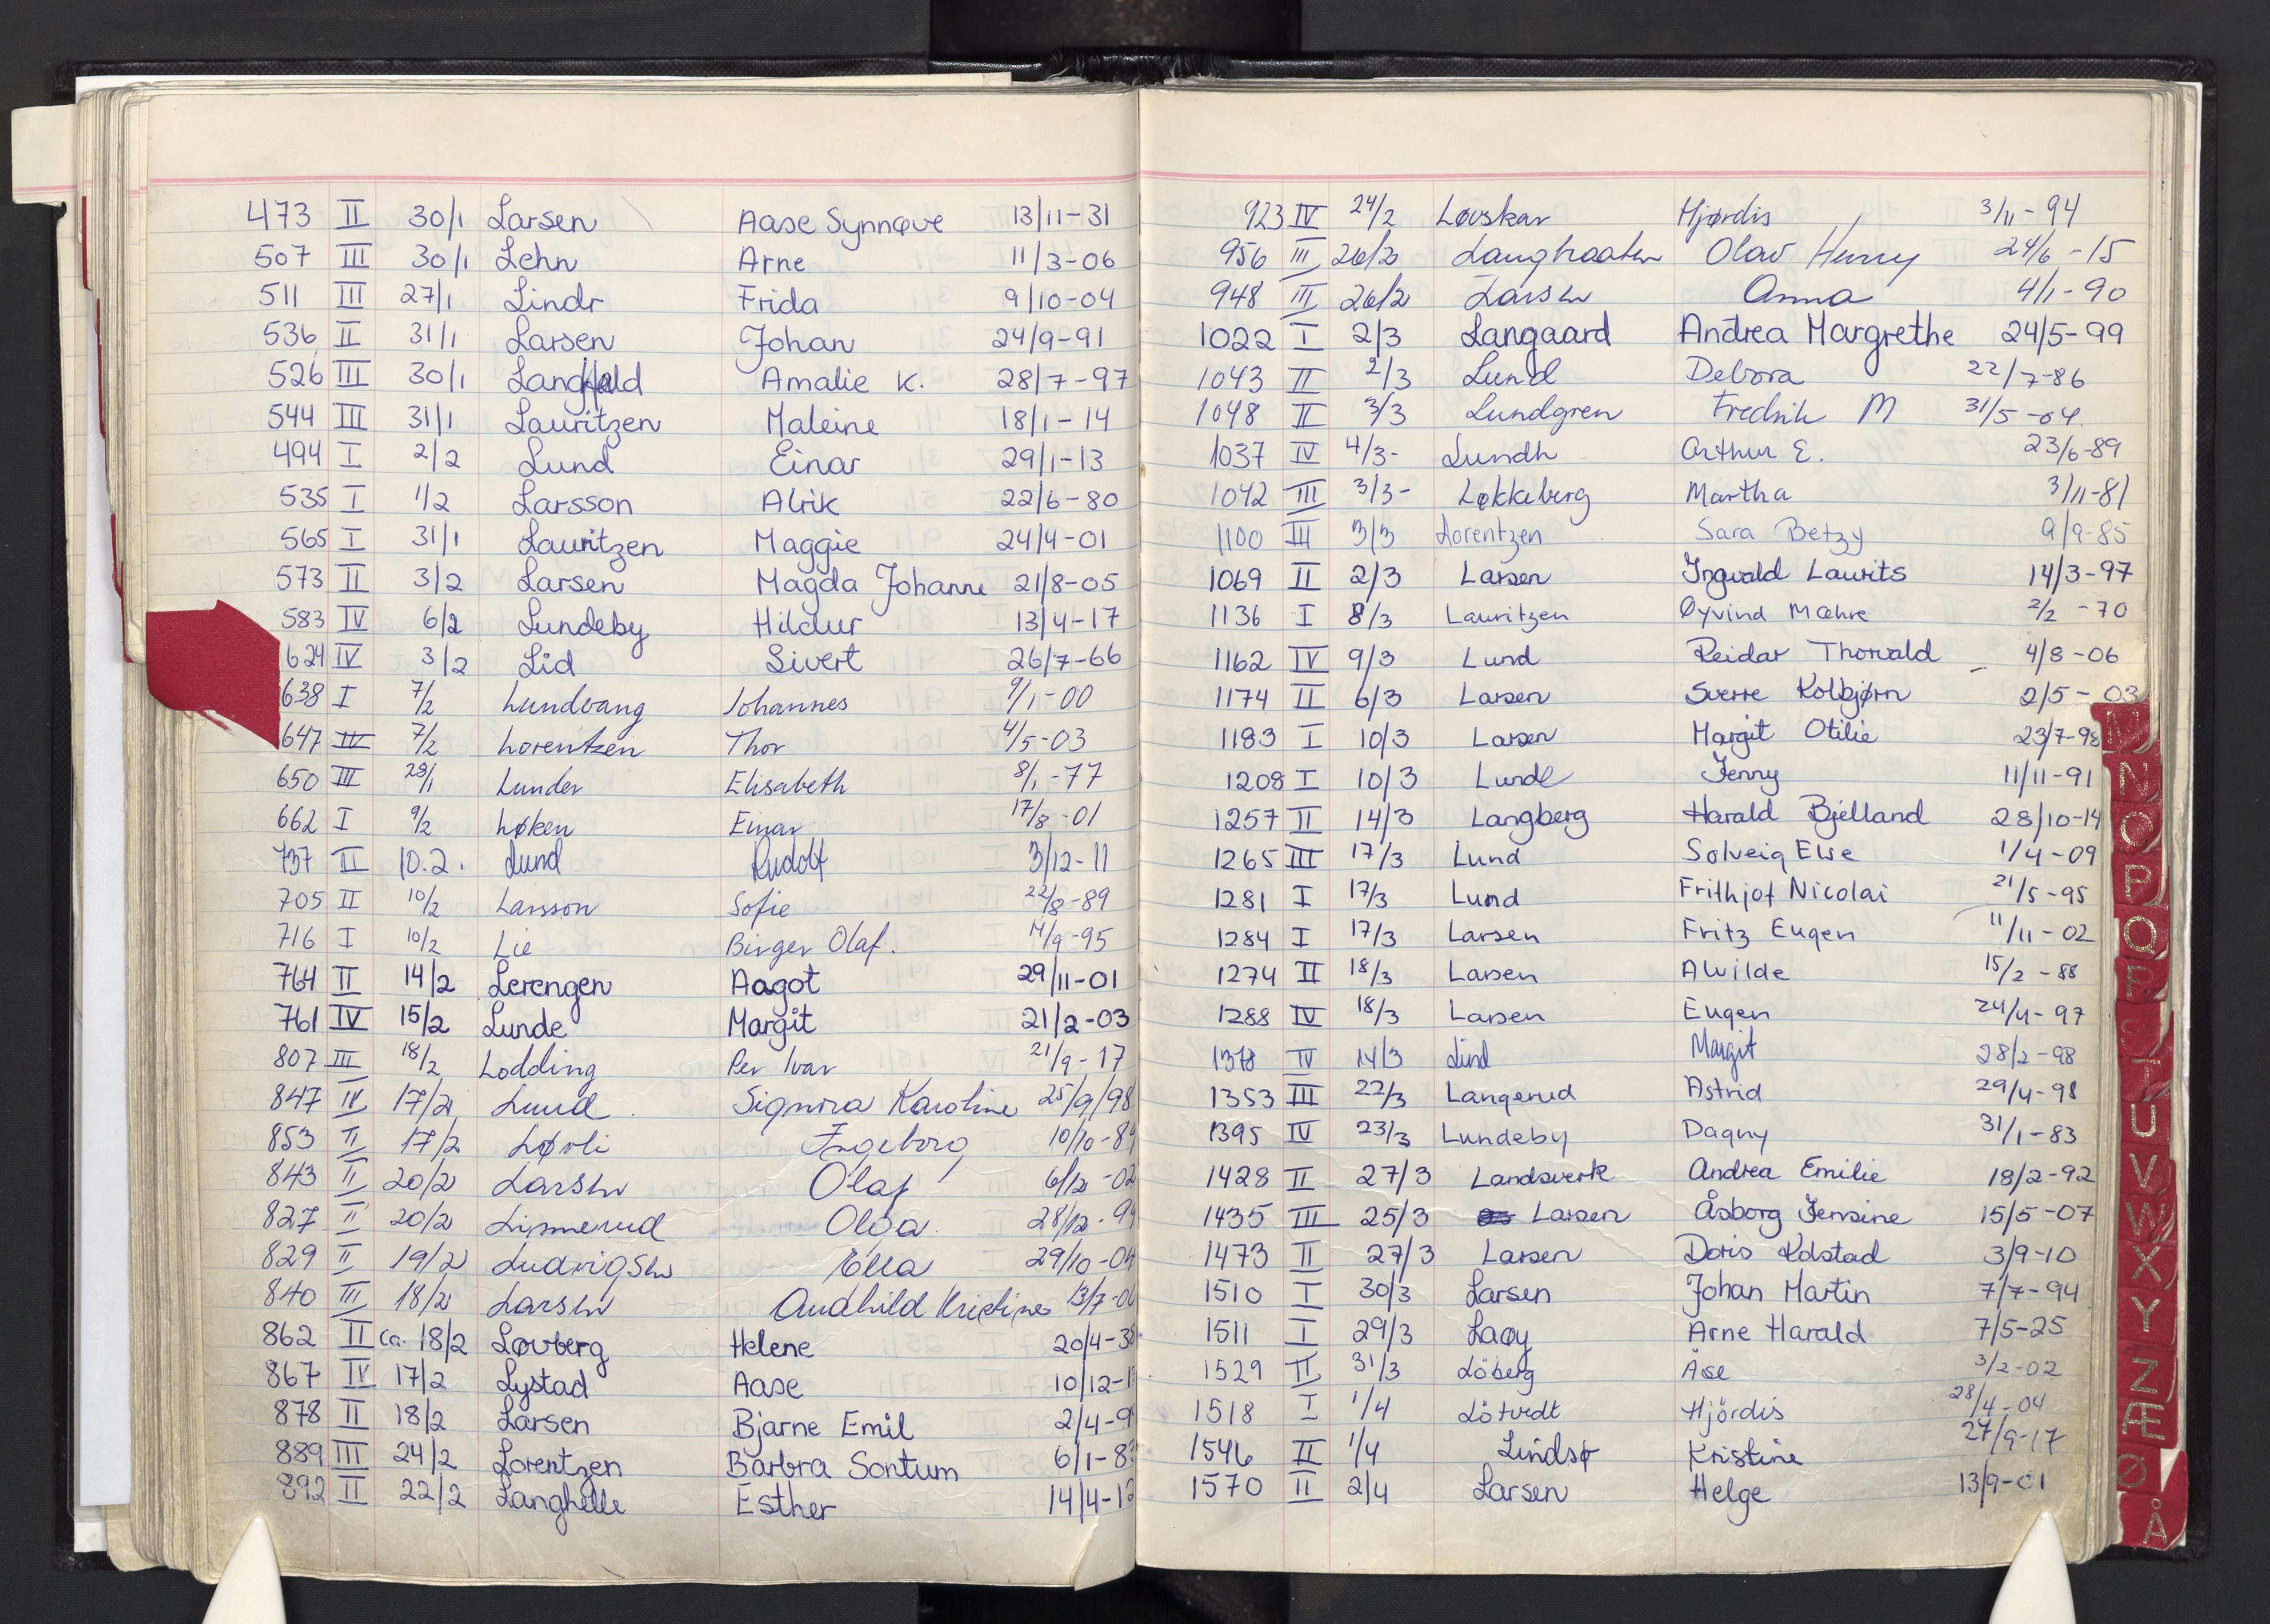 473 II 30/1 Larsen Aase Synnøve 13/11-31
507 III 30/1 Lehn Arne 11/3-06
511 III 27/1 Lindr Frida 9/10-04
536 II 31/1 Larsen Johan 24/9-91
526 III 30/1 Amalie K. 28/7-97
544 III 31/1 Lauritzen Maleine 18/1-14
494 I 2/2 Lund Einar 29/1-13
535 I 1/2 Larsson Alrik 22/6-80
565 I 31/1 Lauritzen Maggie 24/4-01
573 II 3/2 Larsen Magda Johanne 21/8-05
583 IV 6/2 Lundeby Hildur 13/4-17
624 IV 3/2 Lid Sivert 26/7-66
638 I 7/2 Lundvang Johannes 9/1-00
647 IV 7/2 Lorentzen Thor 4/5-03
650 III 28/1 Lunder Elisabeth 8/1-77
662 I 9/2 Løken Einar 17/8-01
737 II 10.2. Lund Rudolf 3/12-11
705 II 10/2 Larsson Sofie 22/8-89
716 I 10/2 Lie Birger Olaf. 14/9-95
764 II 14/2 Lerengen Aagot 29/11-01
761 IV 15/2 Lunde Margit 21/2-03
807 III 18/2 Lodding Per Ivar 21/9-17
847 IV 17/2 Lund Signora Karoline 25/9/98
853 II 17/2 Løvli Ingeborg 10/10-89
843 II 20/2 Larsen Olaf 6/12-02
827 II 20/2 Limmerud Olga 28/12-94
829 II 19/2 Ludvigsen Ella 29/10-04
840 III 18/2 Larsen Audhild Kristine 13/7-00
862 II ca. 18/2 Løvberg Helene 20/4-38
867 IV 17/2 Lystad Aase 10/12-1
878 II 18/2 Larsen Bjarne Emil 2/4-9
889 III 24/2 Lorentzen Barbra Sontum 6/1-83
892 II 22/2 Langhelle Esther 14/4-12
923 IV 24/2 Løvskar Hjørdis 3/11-94
956 III 26/2 Langbraaten Olav Henry 24/6-15
948 III 26/2 Larsen Anna 4/1-90
1022 I 2/3 Langaard Andrea Margrethe 24/5-99
1043 II 2/3 Lund Debora 22/7-86
1048 II 3/3 Lundgren Fredrik M 31/5-04.
1037 IV 4/3- Lundh Arthur E. 23/6-89
1042 III 3/3- Løkkeberg Martha 3/11-81
1100 III 3/3 Lorentzen Sara Betzy 9/9-85
1069 II 2/3 Larsen Ingvald Laurits 14/3-97
1136 I 8/3 Lauritzen Øyvind Mæhre 2/2-70
1162 IV 9/3 Lund Reidar Thorvald 4/8-06
1174 II 6/3 Larsen Sverre Kolbjørn 2/5-03
1183 I 10/3 Larsen Margit Otilie 23/7-98
1208 I 10/3 Lunde Jenny 11/11-91
1257 II 14/3 Langberg Harald Bjelland 28/10-14
1265 III 17/3 Lund Solveig Else 1/4-09
1281 I 17/3 Lund Frithjof Nicolai 21/5-95
1284 I 17/3 Larsen Fritz Eugen 11/11-02
1274 II 18/3 Larsen Alvilde 15/2-88
1288 IV 18/3 Larsen Eugen 24/4-97
1378 IV 14/3 Lind Margit 28/2-98
1353 III 22/3 Langerud Astrid 29/4-98
1395 IV 23/3 Lundeby Dagny 31/1-83
1428 II 27/3 Landsverk Andrea Emilie 18/2-92
1435 III 25/3 Larsen Åsborg Jensine 15/5-07
1473 II 27/3 Larsen Doris Kolstad 3/9-10
1510 I 30/3 Larsen Johan Martin 7/7-94
1511 I 29/3 Laøy Arne Harald 7/5-25
1529 II 31/3 Löberg Åse 3/2-02
1518 I 1/4 Lötvedt Hjördis 28/4-04
1546 II 1/4 Lindsø Kristine 27/9-17
1570 II 2/4 Larsen Helge 13/9-01
N
O
P
Q
R
T
U
V
W
X
Y
Z
Æ
Ø
Å